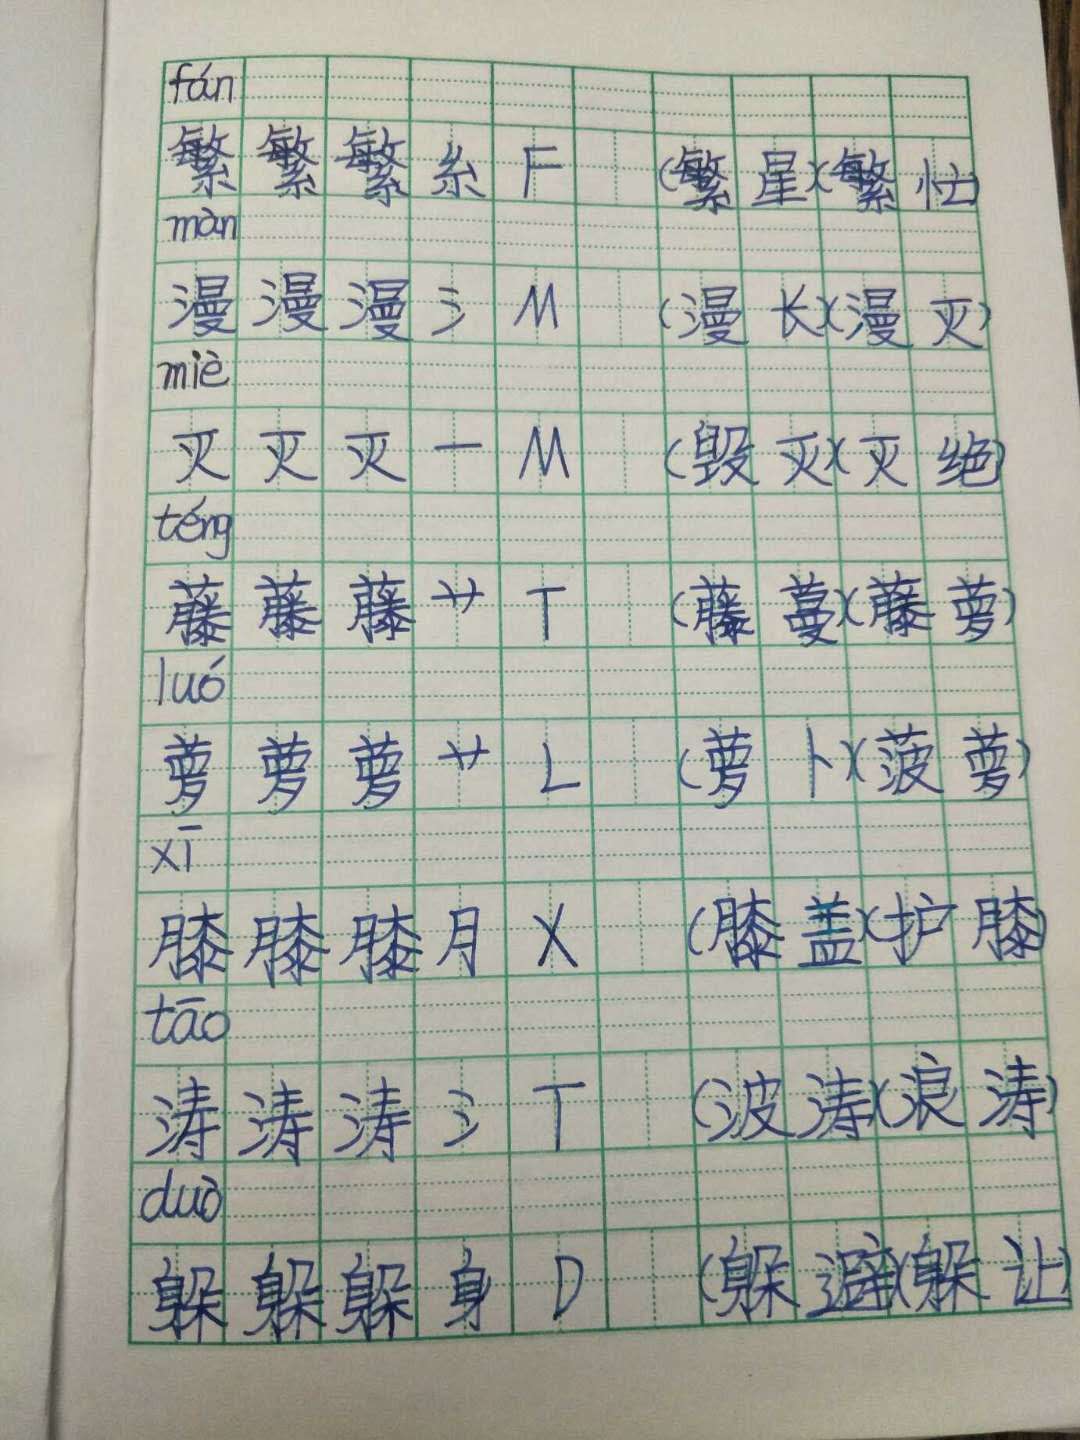 fán
繁 繁 繁 糸 F (繁星)(繁忙)
màn
漫 漫 漫 氵 M (漫长)(漫灭)
miè
灭 灭 灭 一 M (毁灭)(灭绝)
téng
藤 藤 藤 艹 T (藤蔓)(藤萝)
luó
萝 萝 萝 艹 L (萝卜)(菠萝)
xī
膝 膝 膝 月 X (膝盖)(护膝)
tāo
涛 涛 涛 氵 T (波涛)(浪涛)
duò
躲 躲 躲 身 D (躲避)(躲让)